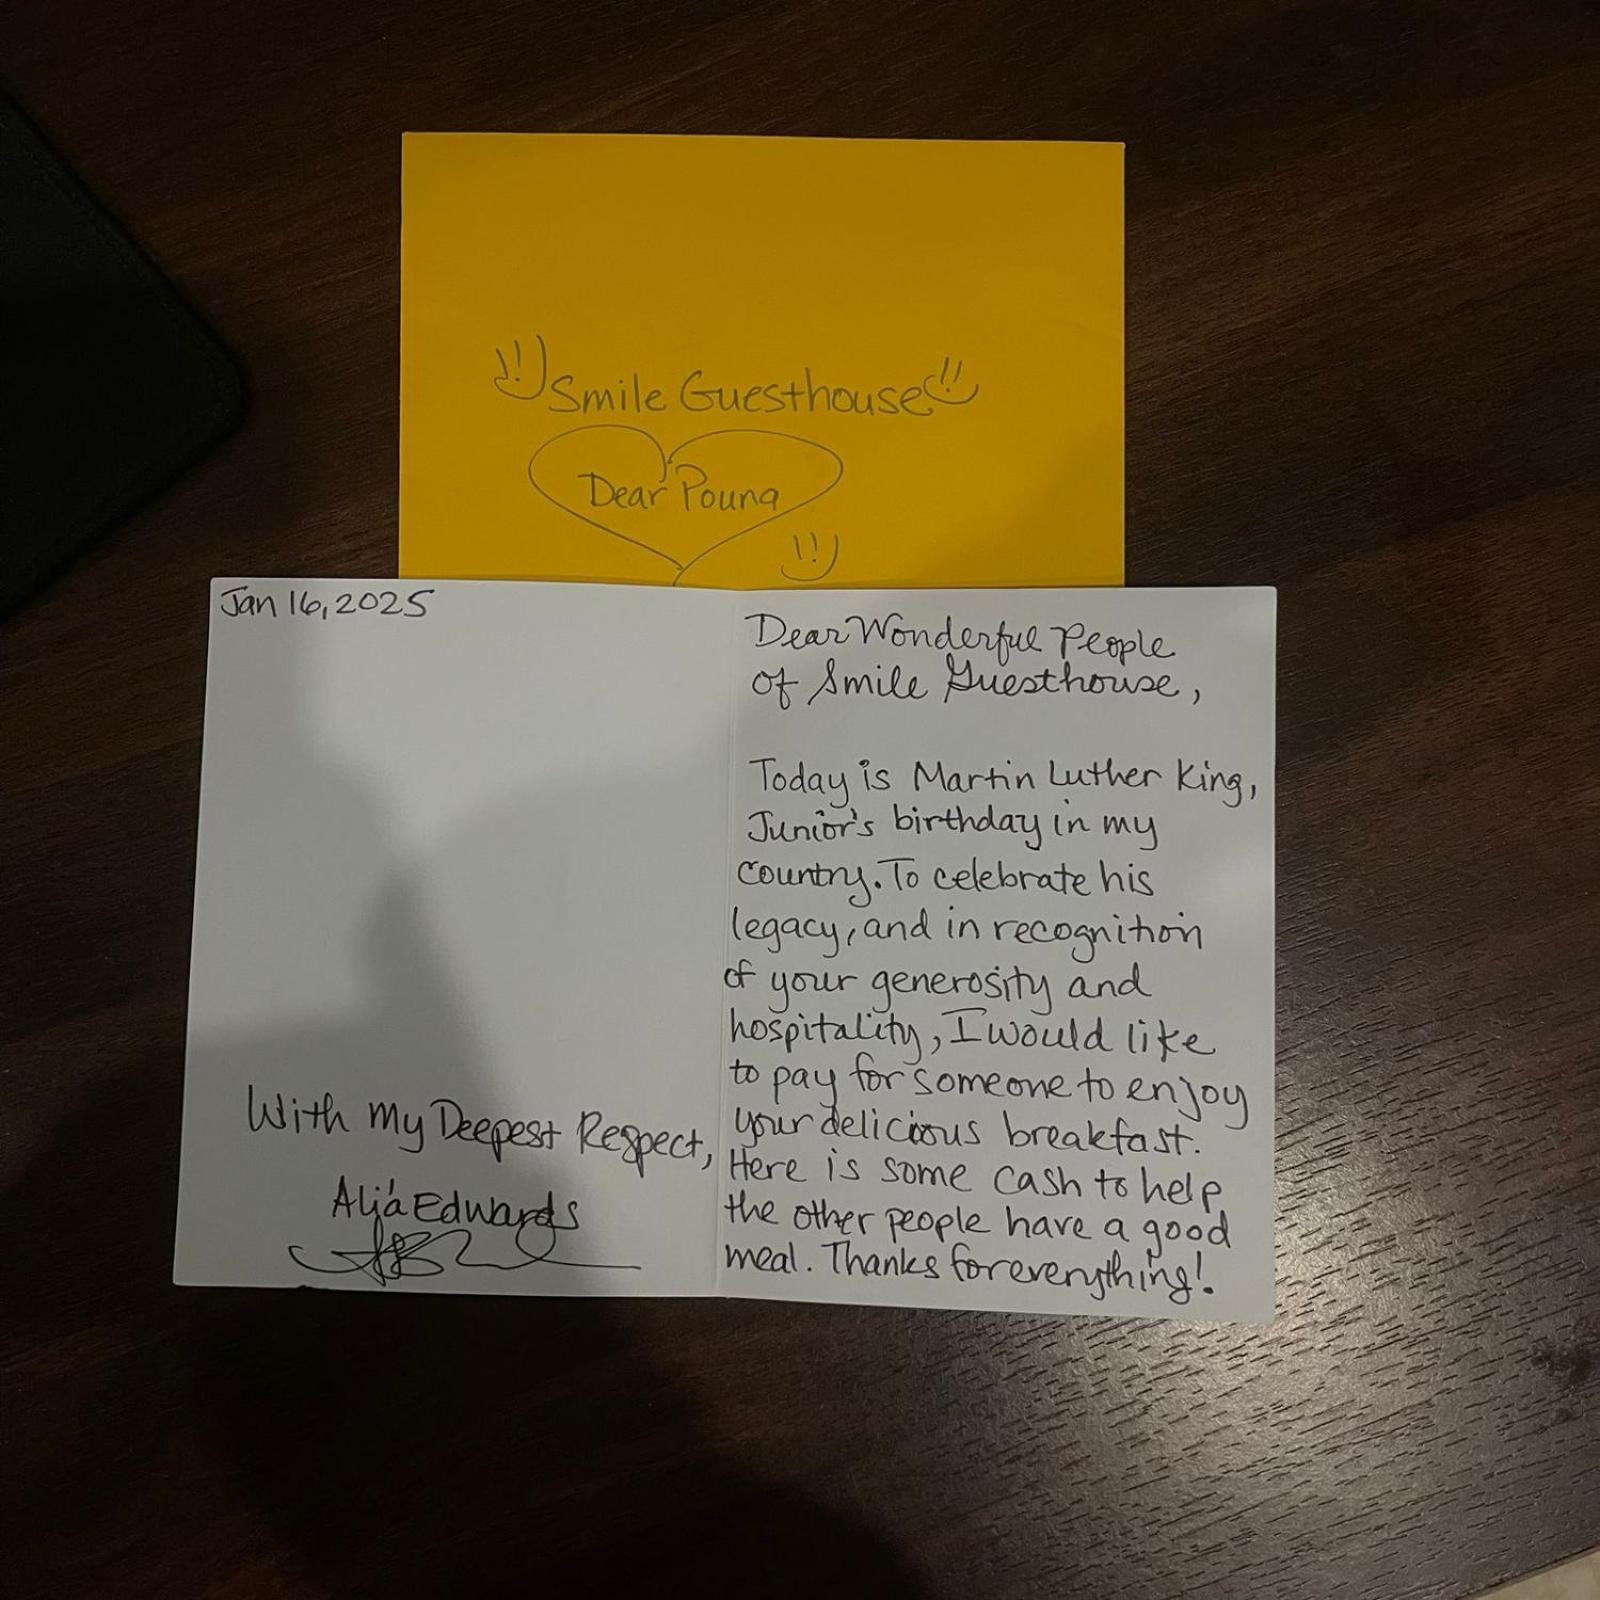 Smile Guesthouse
Dear Pouna
Jan 16, 2025
With My Deepest Respect,
Alja Edwards
Dear Wonderful People
of Smile Guesthouse,
Today is Martin Luther King,
Junior's birthday in my
country. To celebrate his
legacy, and in recognition
of your generosity and
hospitality, I would like
to pay for someone to enjoy
your delicious breakfast.
Here is some cash to help
the other people have a good
meal. Thanks for everything!